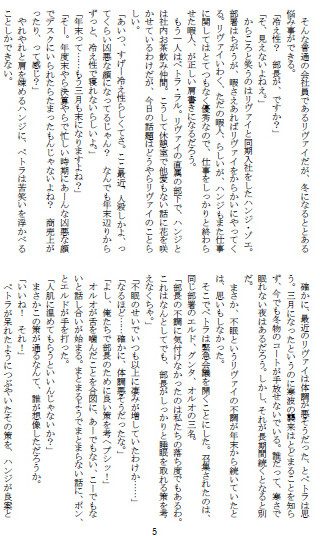 そんな普通の会社員であるリヴァイだが、冬になるととある
悩み事ができる。
「冷え性？　部長が、ですか？」
「そ、見えないよねぇ」
からころと笑うのはリヴァイと同期入社をしたハンジ・ゾエ。
部署はちがうが、暇さえあればリヴァイをからかいにやってく
る。リヴァイいわく、ただの暇人、らしいが、ハンジもまた仕事
に関してはとてつもなく優秀なので、仕事をしっかりと終わら
せた暇人、が正しい肩書きになるだろう。
もう一人は、ペトラ・ラル。リヴァイの直属の部下で、ハンジと
は社内お茶飲み仲間。こうして休憩室で他愛もない話に花を咲
かせているわけだが、今日の話題はどうやらリヴァイのことら
しい。
「あいつ、すげー冷え性らしくてさ。ここ最近、人殺しかよ、っ
てくらい凶悪な顔になってるじゃん？　なんでも年末辺りから
ずっと、冷え性で寝れないらしいよ。」
「年末って……もう三月も末になりますよね？」
「そー。年度末やら決算やらで忙しい時期にあーんな凶悪な顔
でデスクにいられたらたまったもんじゃないよね？　商売上が
ったり、って感じ？」
やれやれと肩を竦めるハンジに、ペトラは苦笑いを浮かべる
ことしかできない。
確かに、最近のリヴァイは体調が悪そうだった、とペトラは思
う。三月になったというのに寒波の襲来はとどまることを知ら
ず、今でも冬物のコートが手放せないでいる。誰だって、寒さで
眠れない夜はあるだろう。しかし、それが長期間続くとなると別
だ。
まさか、不眠というリヴァイの不調が年末から続いていたと
は、思いもしなかった。
そこでペトラは緊急会議を開くことにした。召集されたのは、
同じ部署のエルド、グンタ、オルオの三名。
「部長の不調に気付けなかったのは私たちの落ち度でもあるわ。
これはなんとしてでも、部長がしっかりと睡眠を取れる策を考
えなくちゃ。」
「不眠のせいでいつも以上に凄みが増していたわけか……」
「なるほど……確かに、体調悪そうだったな。」
「よし、俺たちで部長のために良い策を考へブシッ！」
オルオが舌を噛んだことを合図に、あーでもない、こーでもな
いと話し合いが始まる。まとまるようでまとまらない話に、ポン、
とエルドが手を打った。
「人肌に温めてもらうといいんじゃないか？」
まさかこの策が通るなんて、誰が想像しただろうか。
「いいね！　それ！」
ペトラが呆れたようにつぶやいたその策を、ハンジが良案と
5